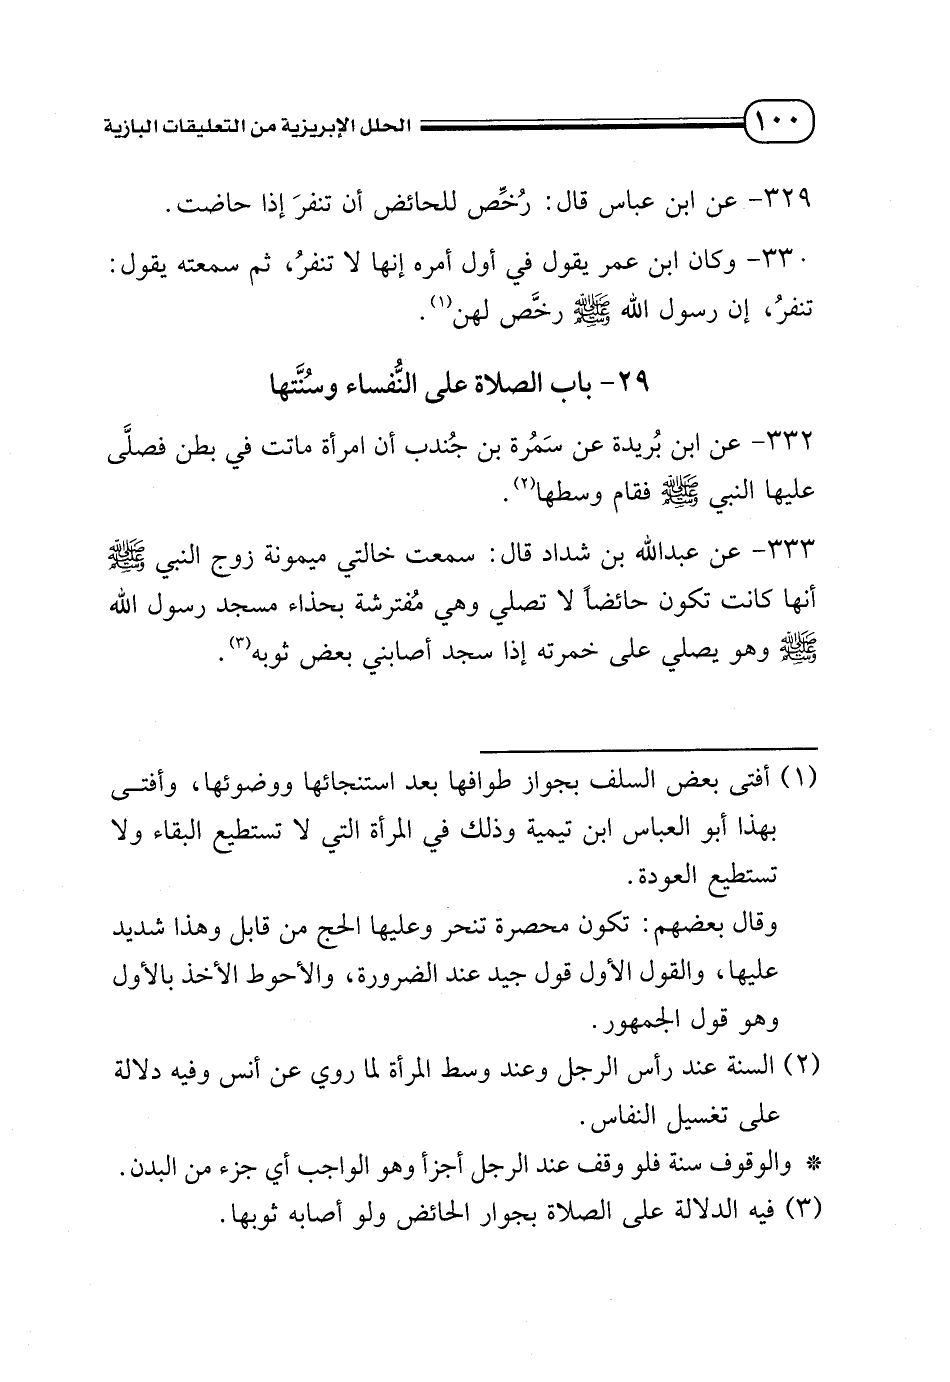 ١٠٠ الحلل الإبريزية من التعليقات البازية
٣٢٩- عن ابن عباس قال: رُخِّص للحائض أن تنفرَ إذا حاضت.
٣٣٠- وكان ابن عمر يقول في أول أمره إنها لا تنفرُ، ثم سمعته يقول:
تنفرُ، إن رسول الله ﷺ رخَّص لهن(١).
٢٩- باب الصلاة على النُّفساء وسُنَّتها
٣٣٢- عن ابن بُريدة عن سَمُرة بن جُندب أن امرأة ماتت في بطن فصلَّى
عليها النبي ﷺ فقام وسطها(٢).
٣٣٣- عن عبدالله بن شداد قال: سمعت خالتي ميمونة زوج النبي ﷺ
أنها كانت تكون حائضاً لا تصلي وهي مُفترشة بحذاء مسجد رسول الله
ﷺ وهو يصلي على خمرته إذا سجد أصابني بعض ثوبه(٣).
(١) أفتى بعض السلف بجواز طوافها بعد استنجائها ووضوئها، وأفتـى
بهذا أبو العباس ابن تيمية وذلك في المرأة التي لا تستطيع البقاء ولا
تستطيع العودة.
وقال بعضهم: تكون محصرة تنحر وعليها الحج من قابل وهذا شديد
عليها، والقول الأول قول جيد عند الضرورة، والأحوط الأخذ بالأول
وهو قول الجمهور.
(٢) السنة عند رأس الرجل وعند وسط المرأة لما روي عن أنس وفيه دلالة
على تغسيل النفاس.
* والوقوف سنة فلو وقف عند الرجل أجزأ وهو الواجب أي جزء من البدن.
(٣) فيه الدلالة على الصلاة بجوار الحائض ولو أصابه ثوبها.